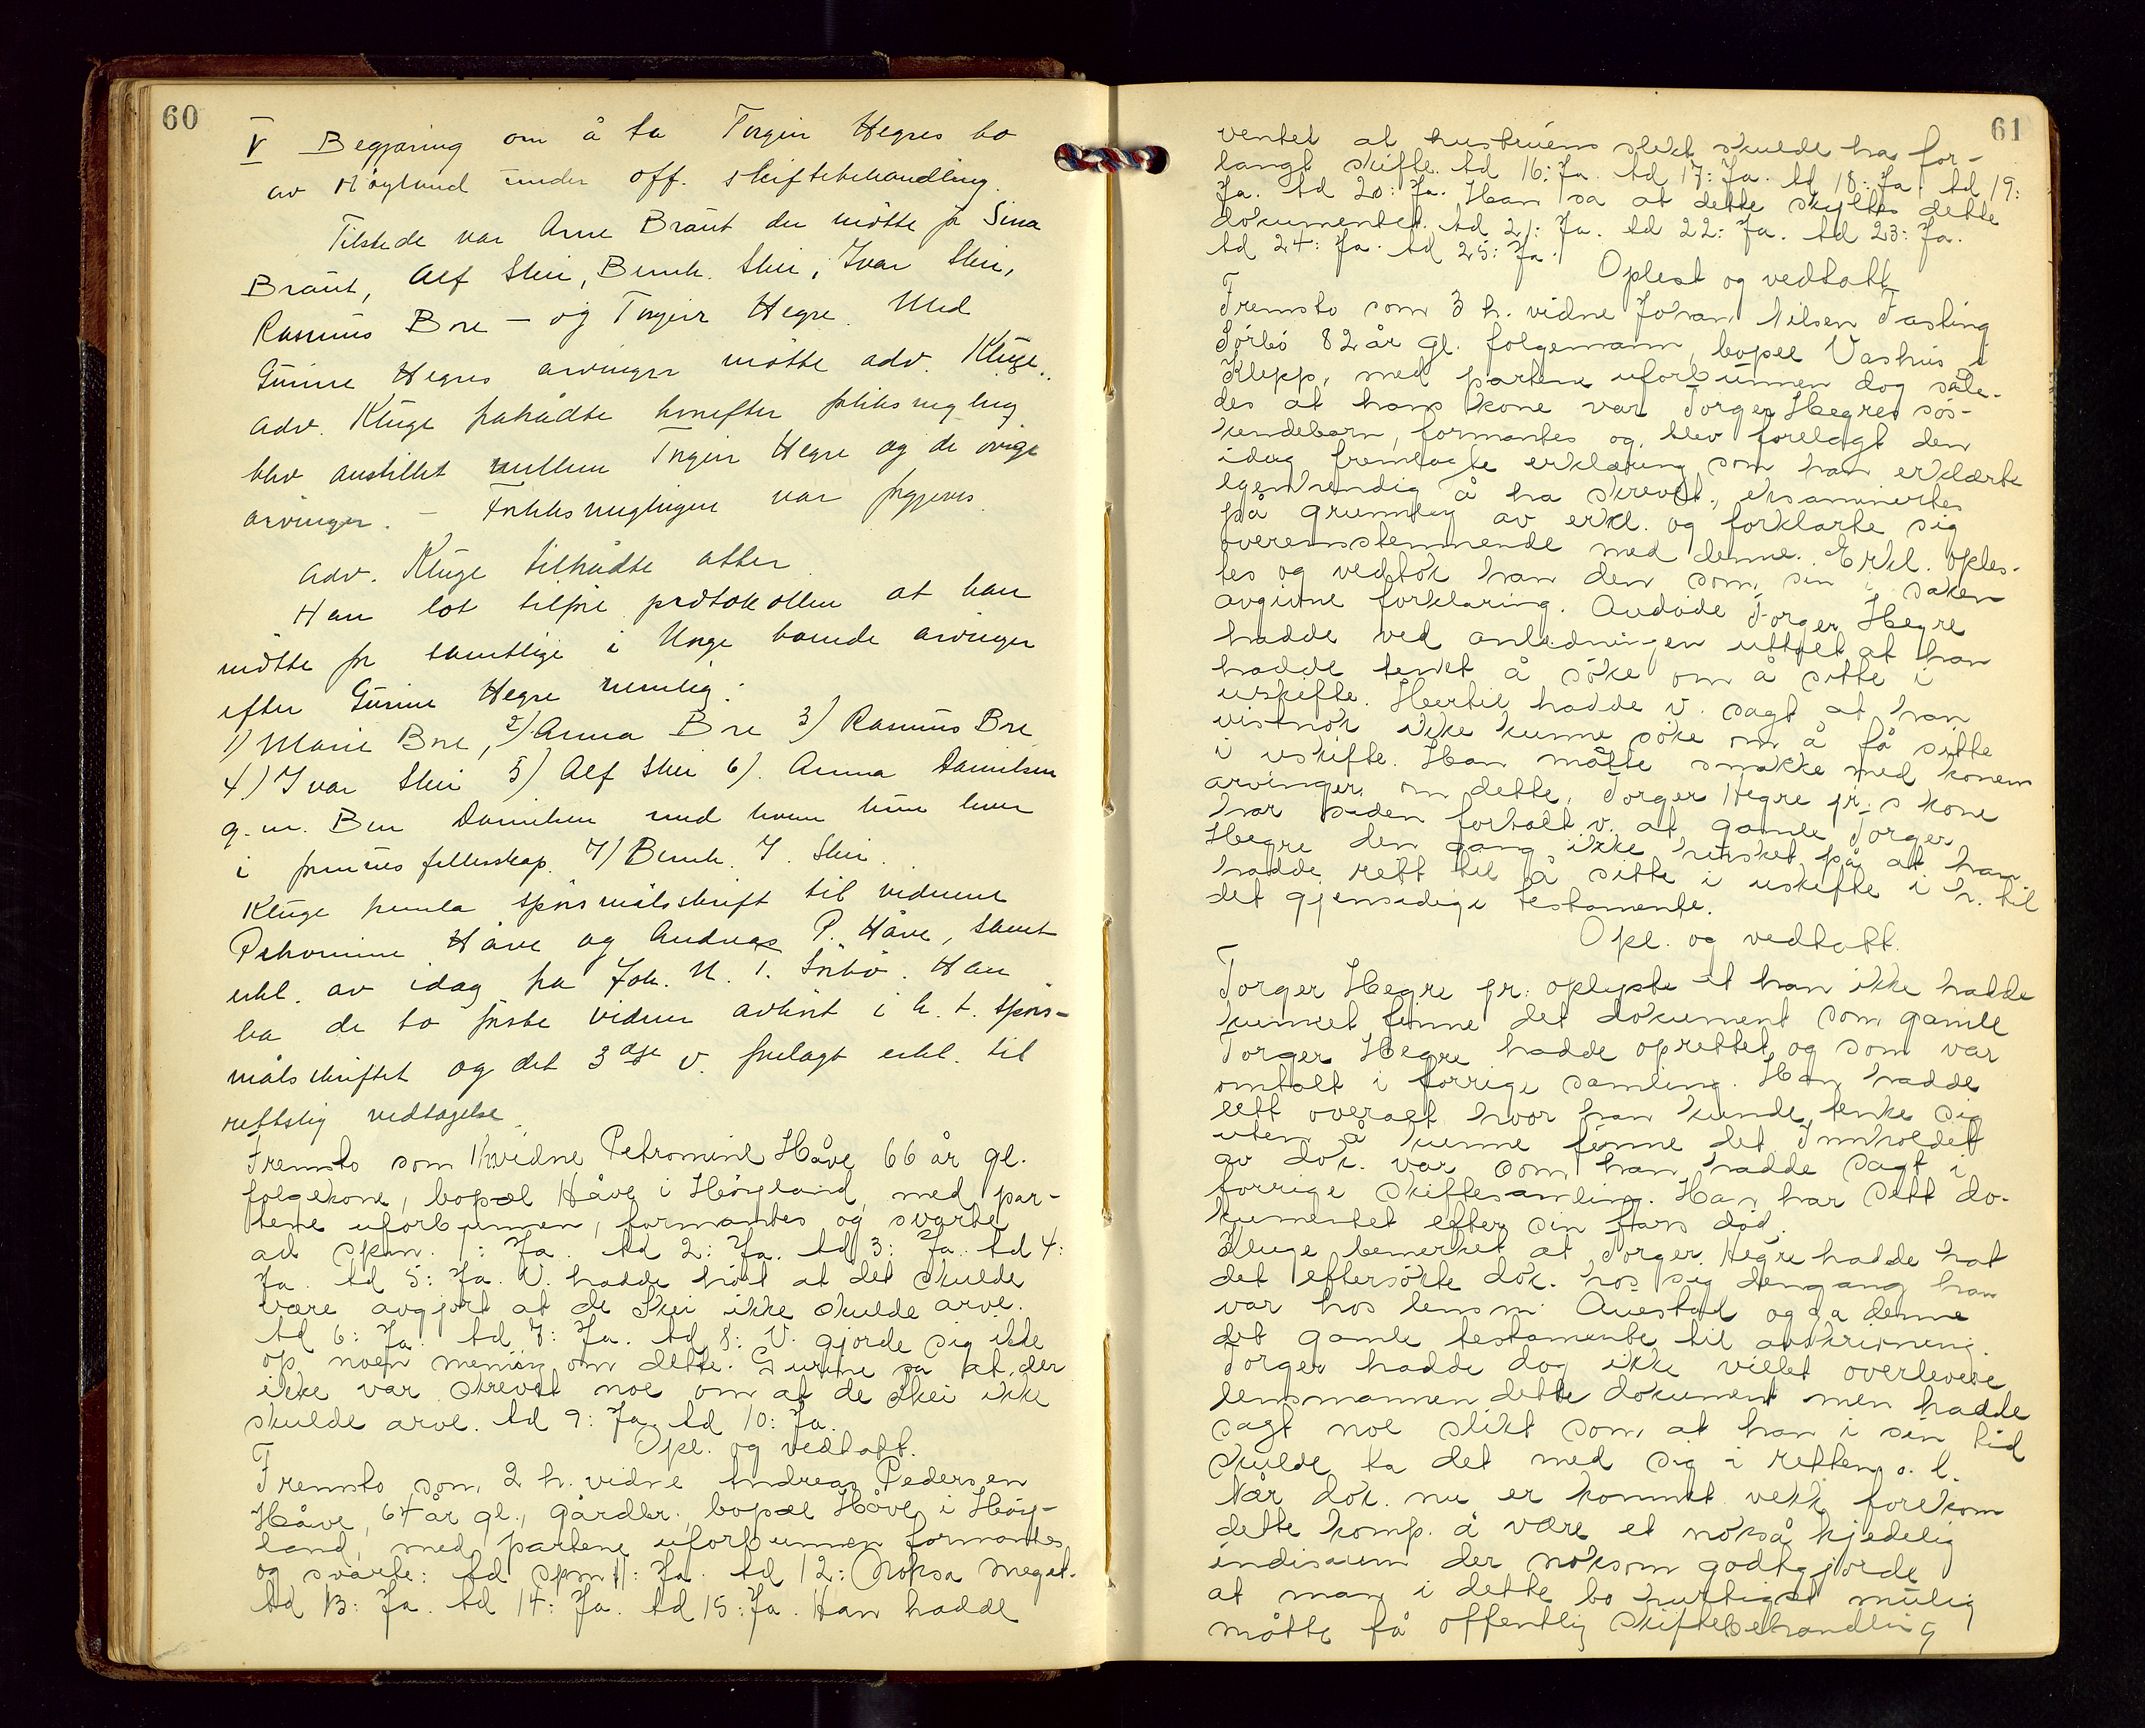 60
V Begjæring om å ta Torger Hegres bo
av Höyland under off. skiftebehandling.
Tilstede var Arne Braut der mötte for Sina
Braut, Alf Skei, Bernh. Skei, Ivar Skei,
Rasmus Bore – og Torgeir Hegre. Med
Gurine Hegres arvinger mötte adv. Kluge.
Adv. Kluge hvorefter forliksmegling
blev anstillet mellem Torgeir Hegre og de övrige
arvinger. – Forliksmeglingen var forgjeves.
Adv. Kluge tilrådte atter
Han lot tilföie protokollen at han
mötte for samtlige i Norge boende arvinger
efter Gurine Hegre nemlig:
1) Marie Bore, 2) Anna Bore 3) Rasmus Bore
4) Ivar Skei 5) Alf Skei 6). Anna Danielsen
g.m. Ben Danielsen med hvem hun lever
i formuesfellesskap. 7) Bernh. I. Skei.
Kluge fremla spörsmålsskrift til vidnene
Petromine Håve og Andreas P. Håve, samt
erkl. av idag fra Joh. N. T. Sörbö. Han
ba de to förste vidner avhört i h. t. spörs-
målsskriftet og det 3dje v. forelagt erkl. til
rettslig vedtagelse.
Fremsto som 1h.vidne Petromine Håve 66 år gl.
folgekone, bopæl Håve i Höyland, med par-
tene uforbunnen, formantes og svarte
ad spm. 1: Ja. td 2: Ja. td 3: Ja. td 4:
Ja. td 5: Ja. V. hadde hört at det skulde
være avgjort at de Skei ikke skulde arve.
td 6: Ja. td 7: Ja. td 8: V. gjorde sig ikke
op noen mening om dette. Gurine sa at der
ikke var skrevet noe om at de Skei ikke
skulde arve. td 9: Ja. td 10: Ja.
Opl. og vedtatt.
Fremsto som 2 h. vidne Andreas Pedersen
Håve, 64 år gl., gårdbr., bopæl Håve i Höy-
land, med partene uforbunnen formantes
og svarte: td spm 11: Ja. td 12: Noksa meget.
td 13: Ja. td 14: Ja. td 15: Ja. Han hadde
61
ventet at hustruens slekt skulde ha for-
langt skifte. td 16: Ja. td 17: Ja. td 18: Ja. td 19:
Ja. td 20: Ja. Han sa at dette skyltes dette
dokumentet. td 21: Ja. td 22: Ja. td 23: Ja.
td 24: Ja. td 25: Ja.
Oplest og vedtatt
Fremsto som 3 h. vidne Johan Nilsen Tasting
Sörbö 82 år gl. folgemann, bopel Vashus i
Klepp, med partene uforbunnen dog såle-
des at hans kone var Torger Hegres sös-
kendebarn, formantes og blev forelagt den
idag fremlagte erklæring som han erklærte
egenhendig å ha skrevet, eksaminertes
på grunnlag av erkl. og forklarte sig
overensstemmende med denne. Erkl. oples-
tes og vedtok han den som sin i saken
avgivne forklaring. Avdöde Torger Hegre
hadde ved anledningen uttalt at han
hadde tenkt å söke om å sitte i
uskifte. Hertil hadde v. sagt at han
vistnok ikke kunne söke om å få sitte
i uskifte. Han måtte snakke med konens
arvinger om dette. Torger Hegre jr.s kone
har siden fortalt v. at gamle Torger
Hegre den gang ikke husket på at han
hadde rett til å sitte i uskifte i h. til
det gjensidige testamente.
Opl. og vedtatt.
Torger Hegre jr. oplyste at han ikke hadde
kunnet finne det dokument som gamle
Torger Hegre hadde oprettet og som var
omtalt i forrige samling. Han hadde
lett overalt hvor han kunde tenke sig
uten å kunne finne det. Innholdet
av dok. var som han hadde sagt i
forrige skiftesamling. Han har sett do-
kumentet efter sin fars död.
Kluge bemerket at Torger Hegre hadde hat
det eftersökte dok. hos sig dengang han
var hos lensm. Auestad og ga denne
det gamle testamente til avskrivning.
Torger hadde dog ikke villet overlevere
lensmannen dette dokument men hadde
sagt noe slikt som at han i sin tid
skulde ta det med sig i retten o. l.
Når dok. nu er kommet vekk forekom
dette komp. å være et nokså kjedelig
indisium der noksom godtgjorde
at man i dette bo hurtigst mulig
måtte få offentlig skiftebehandling